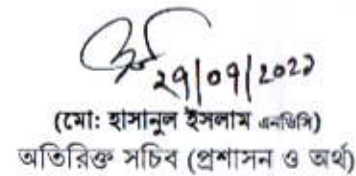 ২৭|০৭|২০২১
(মো: হাসানুল ইসলাম এনডিসি)
অতিরিক্ত সচিব (প্রশাসন ও অর্থ)